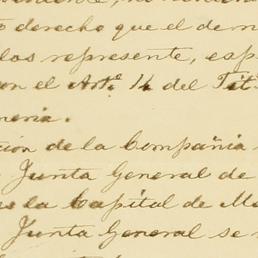 derecho que el de n
los represente, esp
on el Arto. 14 del Tit
neria.
ción de la Compañia
Junta General de
la Capital de Me
Junta General se